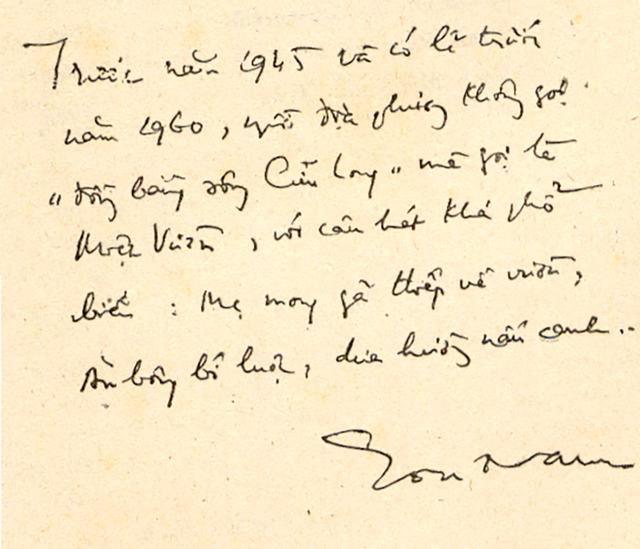 Trước năm 1945 và có lẽ trước
năm 1960, người địa phương không gọi
"đồng bằng sông Cửu Long" mà gọi là
Miệt Vườn, với câu hát khá phổ
biến : Mẹ mong gả thiếp về vườn,
Ăn bông bí luộc, dưa hường nấu canh..
Sơn Nam